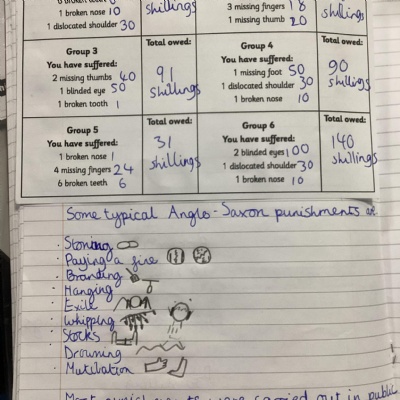 1 broken nose 10
1 dislocated shoulder 30
shillings
3 missing fingers 18
1 missing thumb 20
shillings
Group 3
You have suffered:
2 missing thumbs 40
1 blinded eye 50
1 broken tooth 1
Total owed:
91
shillings
Group 4
You have suffered:
1 missing foot 50
1 dislocated shoulder 30
1 broken nose 10
Total owed:
90
shillings
Group 5
You have suffered:
1 broken nose 1
4 missing fingers 24
6 broken teeth 6
Total owed:
31
shillings
Group 6
You have suffered:
2 blinded eyes 100
1 dislocated shoulder 30
1 broken nose 10
Total owed:
140
shillings
Some typical Anglo-Saxon punishments are
· Stoning
· Paying a fine
· Branding
· Hanging
· Exile
· Whipping
· Stocks
· Drowning
· Mutilation
Most punishments were carried out in public